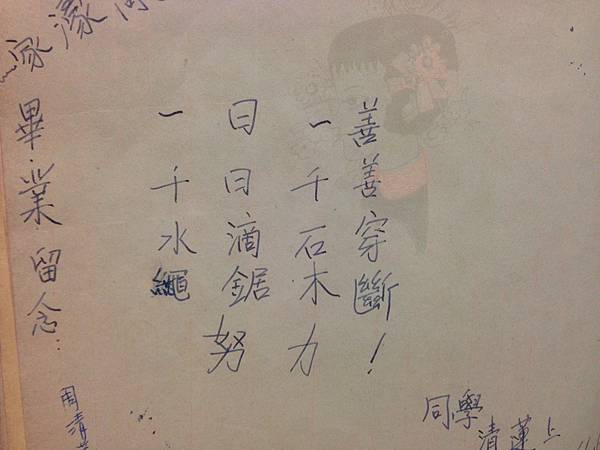 畢業留念：
一日一善
千日千善
水滴石穿
繩鋸木斷
努力！
同學
清蓮上
周清